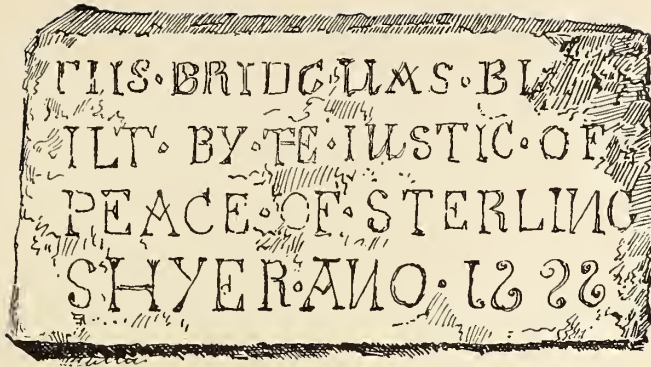 THIS·BRIDG·WAS·BU
ILT·BY·TE·IUSTIC·OF
PEACE·OF·STERLING
SHYER·ANO·